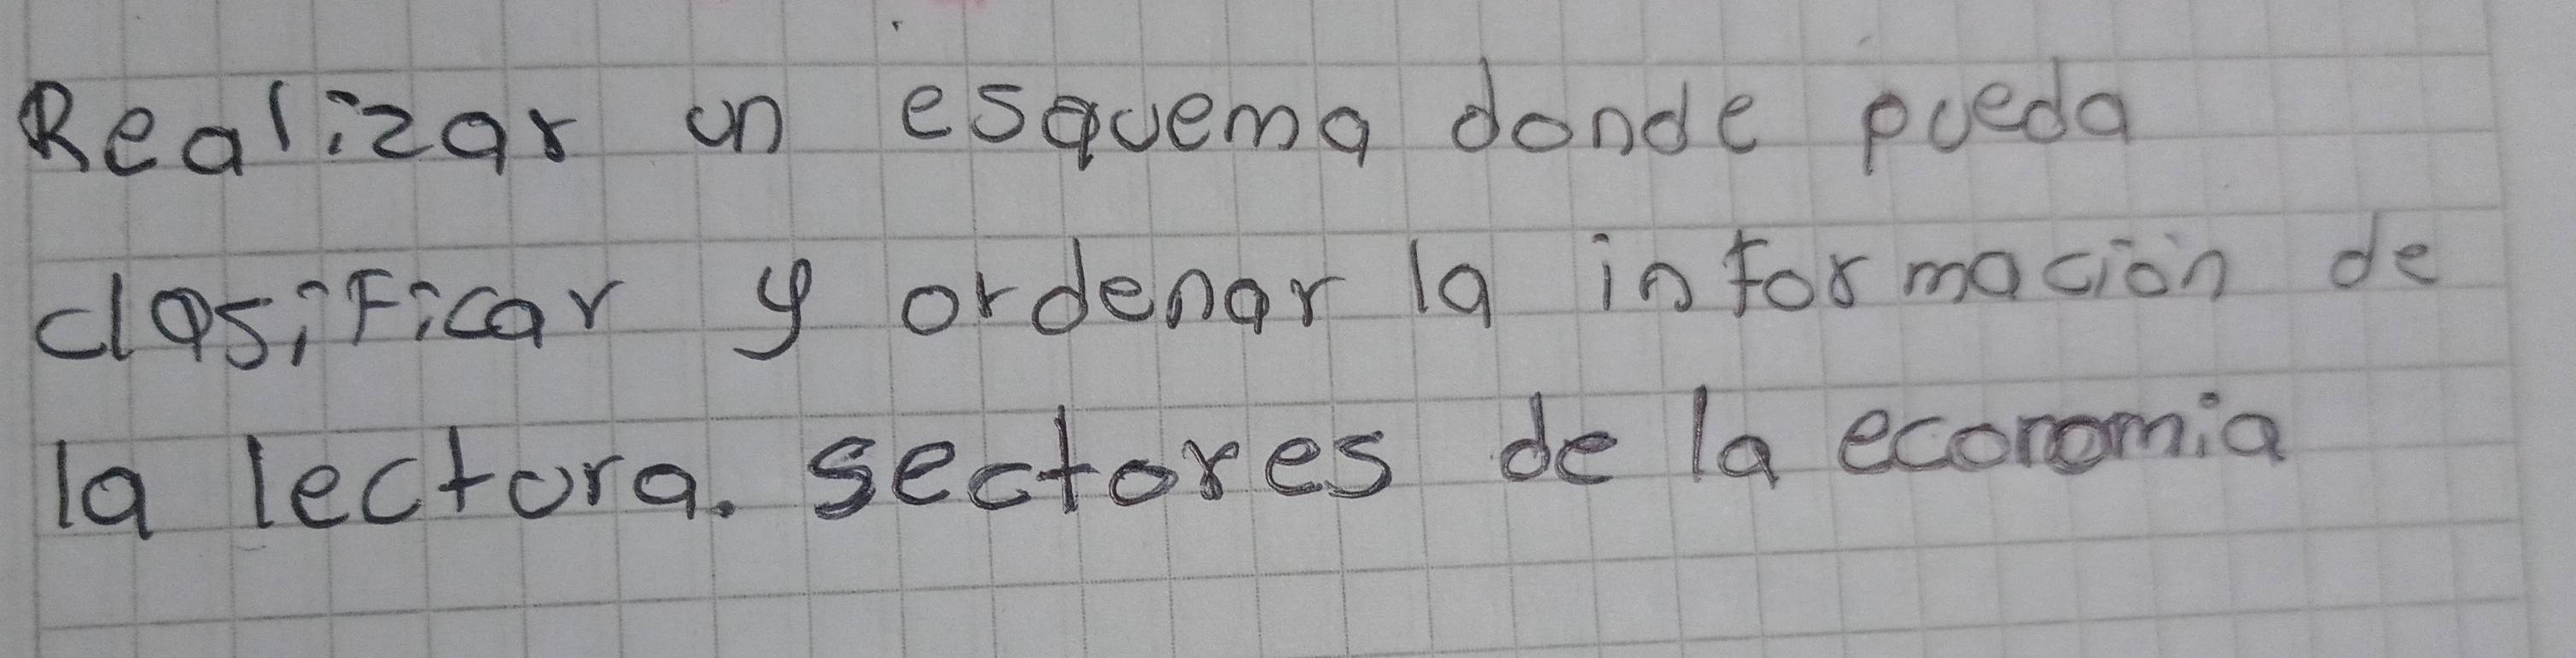 Realizar un esquema donde pueda
clasificar y ordenar la información de
la lectura. sectores de la economia